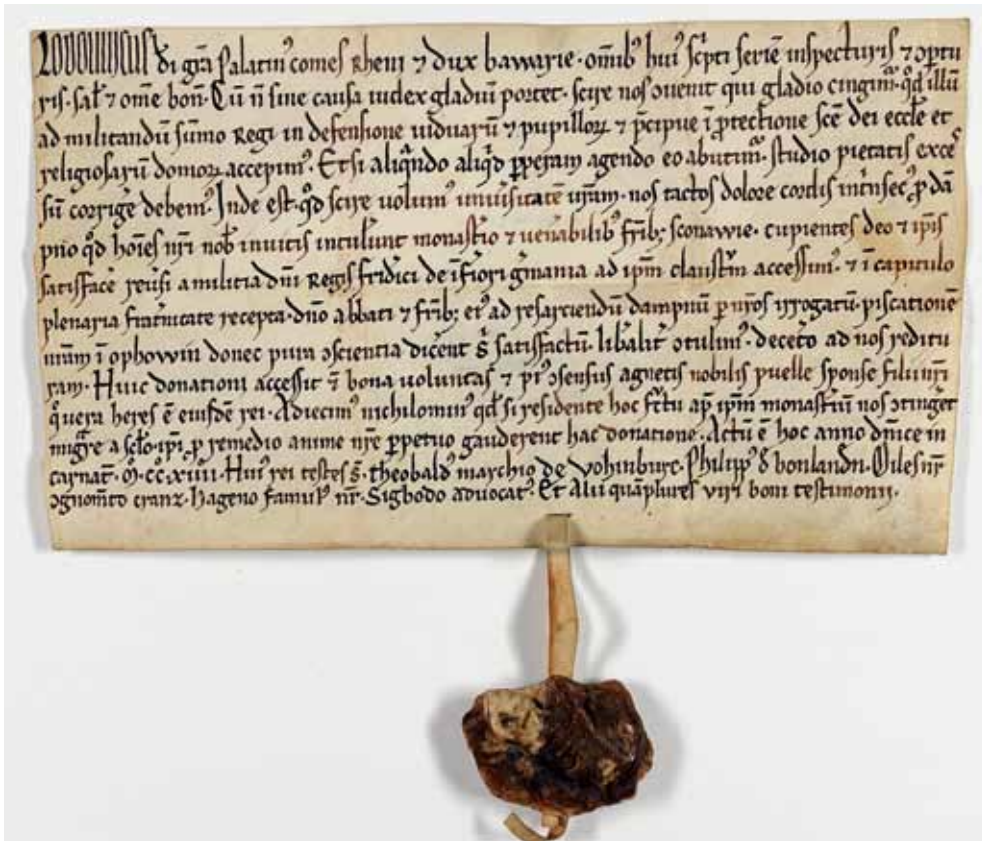 LODOUUICUS di gr̄a Palatin᷒ comes Rheni ⁊ dux bawarie · om̄ib᷒ hui᷒ sc̄pti seriem inspecturis ⁊ ꝯptu
ris · sal̄ ⁊ om̄e bon̄ · Cū n̄ sine causa iudex gladiū portet · scire nos ꝯvenit qui gladio cingim᷒ · qd̄ illū
ad militandū sūmo Regi in defensione viduarū ⁊ pupilloꝝ ⁊ p̄cipue ī ꝓtectione sc̄e dei eccl̄e et
religiosarū domoꝝ accepim᷒ · Et si aliqn̄do aliqd̄ ꝑperam agendo eo abutim᷒ · studio pietatis exce
sū corrige᷒ debem᷒ · Inde est · qd̄ scire volum᷒ univ᷒sitatē vr̄am · nos tactos dolore cordis int᷒nsec᷒ · ꝓ dā
pno qd̄ hoīes nr̄i nob̄ invitis intul᷒unt monast᷒io ⁊ venabilib᷒ fr̄ib; sconawie · cupientes deo ⁊ ip̄is
satisfac᷒e rev᷒si a militia dn̄i Regis frid᷒ici de īf᷒iori g᷒mania ad ip̄m claust᷒m accessim᷒ · ⁊ ī capitulo
plenaria frat᷒nitate recepta · dn̄o abbati ⁊ fr̄ib; ei᷒ ad resarciendū dampnū ꝑ nr̄os irrogatū · piscationē
nr̄am ī ophowin donec pura ꝯscientia dic᷒ent s̄ satisfactū · lib᷒alit᷒ ꝯtulim᷒ · de cet᷒o ad nos reditu
ram · Huic donationi accessit ⁊̄ bona voluntas ⁊ p̄i᷒ ꝯsensus agnetis nobilis puelle sponse filii nr̄i
q̄ vera heres ē eiusdē rei · Adiecim᷒ nichilomin᷒ qd̄ si residente hoc f̄c̄tu ap᷒ ip̄m monast᷒iū nos ꝯtinget
mig᷒re a sc̄lo · ip̄i ꝓ remedio anime nr̄e ꝑpetuo gauderent hac donatione · Actū ē hoc anno dn̄ice in
carnat̄ · M̊ · CC̊ · xiiii · Hui᷒ rei testes s̄ · theobald᷒ marchio de vohinburc · Philipp᷒ d᷒ bonlandn̄ · Miles nr̄
ꝯgnom̄to cranz · hageno famul᷒ nr̄ · Sigbodo advocat᷒ · Et Alii quāplures viri boni testimonii ·